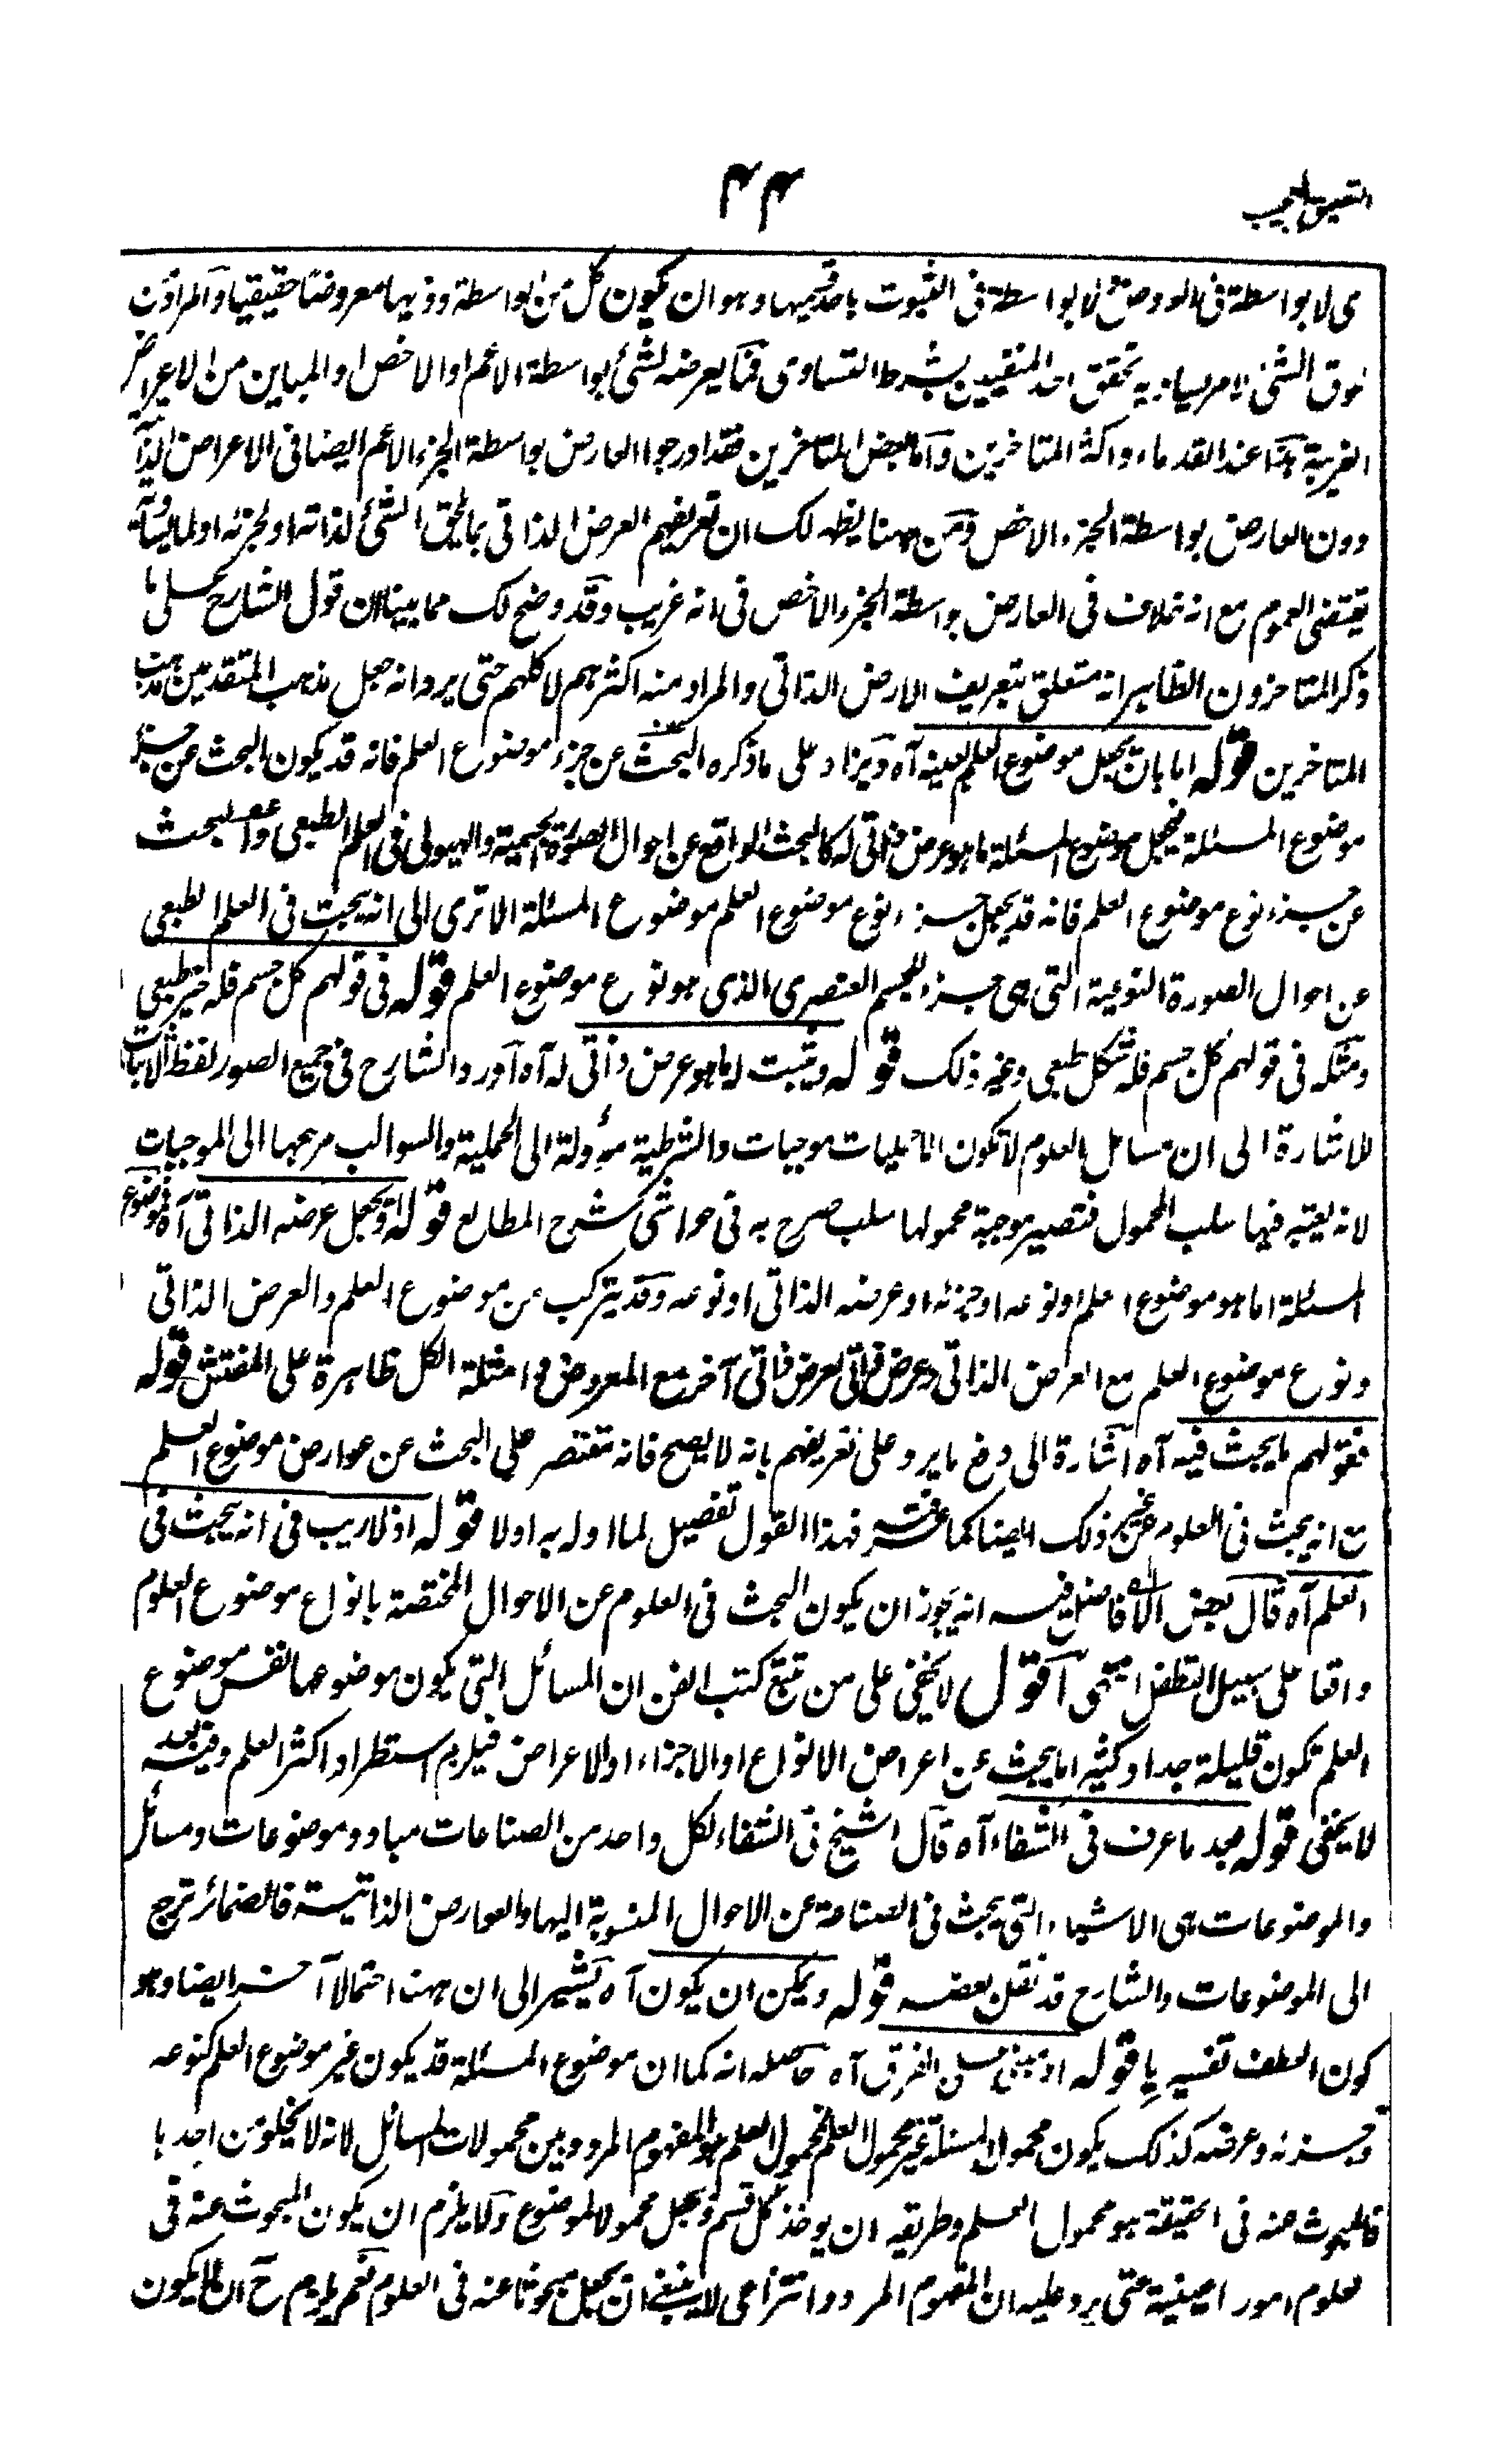 التعليق العجيب
٤٤
ى لا بواسطة فى العروض لا بواسطة فى الثبوت باحد قسميها وهو ان يكون كل من الواسطة وذيها معروضا حقيقيا والمراد من
لحوق الشئ لامر يساويه تحقق احد المنفيين بشرط التساوى فما يعرض لشئ بواسطة الاعم او الاخص او المباين من الاعراض
الغريبة هذا عند القدماء واكثر المتاخرين واما بعض المتاخرين فقد ادرجوا العارض بواسطة الجزء الاعم ايضا فى الاعراض الذاتية
دون العارض بواسطة الجزء الاخص ومن ههنا يظهر لك ان تعريفهم العرض الذاتى بما يلحق الشئ لذاته او لجزئه او لما يساويه
يقتضى العموم مع انه لا خلاف فى العارض بواسطة الجزء الاخص فى انه غريب وقد وضح لك مما بينا ان قول الشارح على ما
ذكر المتاخرون الظاهر انه متعلق بتعريف العرض الذاتى والمراد منه اكثرهم لا كلهم حتى يرد انه جعل مذهب المتقدمين مذهب
المتاخرين قوله اما بان يجعل موضوع العلم بعينه آه ويزاد على ما ذكره البحث عن جزء موضوع العلم فانه قد يكون البحث عن جزء
موضوع المسئلة فيجعل موضوع المسئلة ما هو عرض ذاتى له كالبحث الواقع عن احوال الصورة الجسمية والهيولى فى العلم الطبعى والبحث
عن جزء نوع موضوع العلم فانه قد يجعل جزء نوع موضوع العلم موضوع المسئلة الا ترى الى انه يبحث فى العلم الطبعى
عن احوال الصورة النوعية التى هى جزء للجسم العنصرى الذى هو نوع موضوع العلم قوله فى قولهم كل جسم فله حيز طبعى
ومثله فى قولهم كل جسم فله شكل طبعى وغير ذلك قوله ويثبت له ما هو عرض ذاتى له آه آورد الشارح فى جميع الصور لفظ الاثبات
للاشارة الى ان مسائل العلوم لا تكون الا حمليات موجبات والشرطية مؤولة الى الحملية والسوالب مرجعها الى الموجبات
لانه يعتبر فيها سلب المحمول فتصير موجبة محمولها سلب صرح به فى حواشى شرح المطالع قوله او يجعل عرضه الذاتى آه فموضوع
المسئلة اما هو موضوع العلم او نوعه او جزئه او عرضه الذاتى او نوعه وقد يتركب من موضوع العلم والعرض الذاتى
ونوع موضوع العلم مع العرض الذاتى وعرض ذاتى لعرض ذاتى آخر مع المعروض وامثلة الكل ظاهرة على المفتش قوله
فقولهم ما يبحث فيه آه اشارة الى دفع ما يرد على تعريفهم بانه لا يصح فانه تقتصر على البحث عن عوارض موضوع العلم
مع انه يبحث فى العلوم عن غير ذلك ايضا كما عرفت فهذا القول تفصيل لما اوله به اولا قوله اذ لا ريب فى انه يبحث فى
العلم آه قال بعض الافاضل فيه انه يجوز ان يكون البحث فى العلوم عن الاحوال المختصة بانواع موضوع العلوم
واقعا على سبيل التطفل انتهى اقول لا يخفى على من تتبع كتب الفن ان المسائل التى يكون موضوعها نفس موضوع
العلم تكون قليلة جدا وكثيرا ما يبحث عن اعراض الانواع او الاجزاء او الاعراض فيلزم استطراد اكثر العلم وفيه بعد
لا يخفى قوله بعد ما عرف فى الشفاء آه قال الشيخ فى الشفاء لكل واحد من الصناعات مباد وموضوعات ومسائل
والموضوعات هى الاشياء التى يبحث فى الصناعة عن الاحوال المنسوبة اليها والعوارض الذاتية فالضمائر ترجع
الى الموضوعات والشارح قد نقل بعضه قوله ويمكن ان يكون آه يشير الى ان ههنا احتمالا آخر ايضا وهو
كون العطف تفسيريا قوله او يبنى على الفرق آه حاصله انه كما ان موضوع المسئلة قد يكون غير موضوع العلم كنوعه
وجزئه وعرضه كذلك يكون محمول المسئلة غير محمول العلم فمحمول العلم هو المفهوم المردد بين محمولات المسائل لانه لا يخلو من احدها
فالمبحوث عنه فى الحقيقة هو محمول العلم وطريقه ان يوخذ كل قسم ويجعل محمولا لموضوع ولا يلزم ان يكون المبحوث عنه فى
العلوم امورا عينية حتى يرد عليه ان المفهوم المردد انتزاعى لا ينبغى ان يجعل مبحوثا عنه فى العلوم نعم يلزم ح ان لا يكون